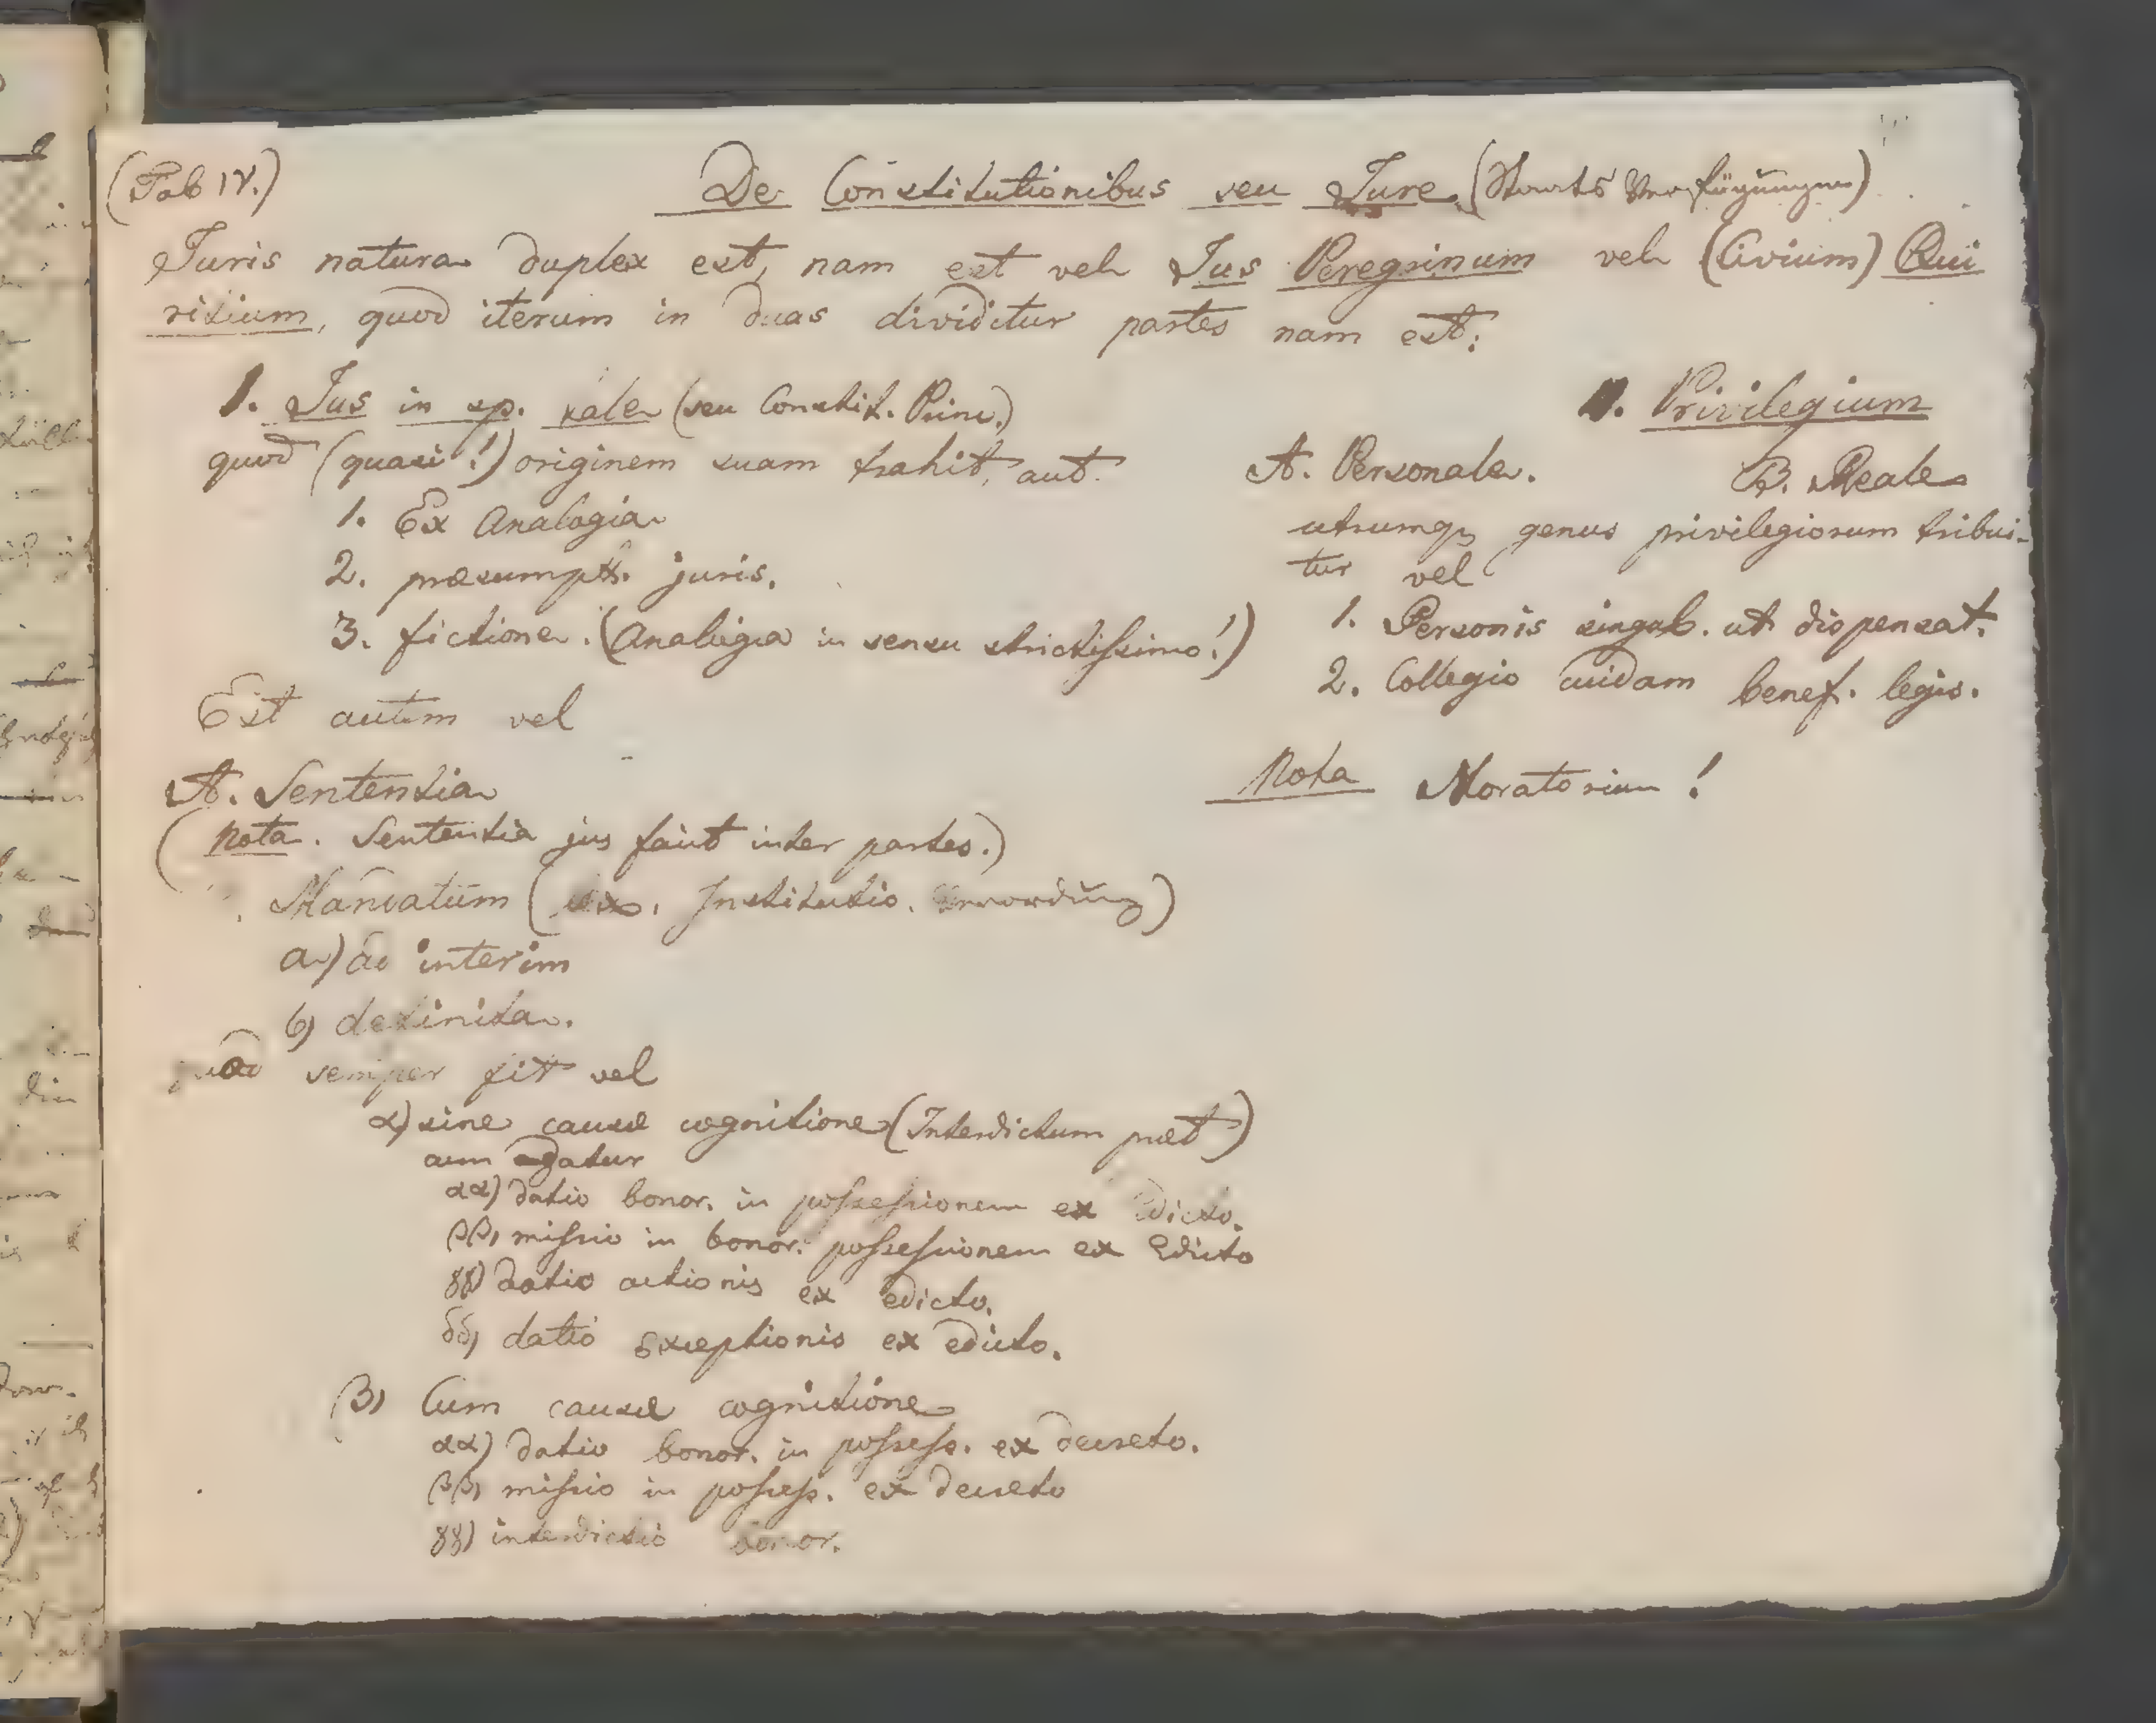 (Tab IV.)
De Constitutionibus seu Jure. (Staats Verfügungen)
Juris natura duplex est, nam est vel Jus Peregrinum vel (Civium) Qui
ritium, quod iterum in duas dividitur partes nam est:
I. Jus in sp. tale (seu Constit. Princ.)
quod (quasi!) originem suam trahit, aut.
1. Ex Analogia
2. præsumpt. juris.
3. fictione. (Analogia in sensu strictissimo!)
Est autem vel
A. Sententia
(Nota. Sententia jus facit inter partes.)
Mandatum ( Institutio. )
a) ad interim
b) definita.
quod semper fit vel
α) sine causæ cognitione (Interdictum præt)
cum agatur
αα) datio bonor. in possessionem ex Edicto.
ββ) missio in bonor. possessionem ex Edicto
γγ) datio actionis ex edicto.
δδ) datio exceptionis ex edicto.
β) Cum causæ cognitione
αα) datio bonor. in possess. ex decreto.
ββ) missio in possess. ex decreto
γγ) interdictio bonor.
II. Privilegium
A. Personale. B. Reale
utrumq genus privilegiorum tribui-
tur vel
1. Personis singul. ut dispensat.
2. Collegio cuidam benef. legis.
Nota Moratorium!